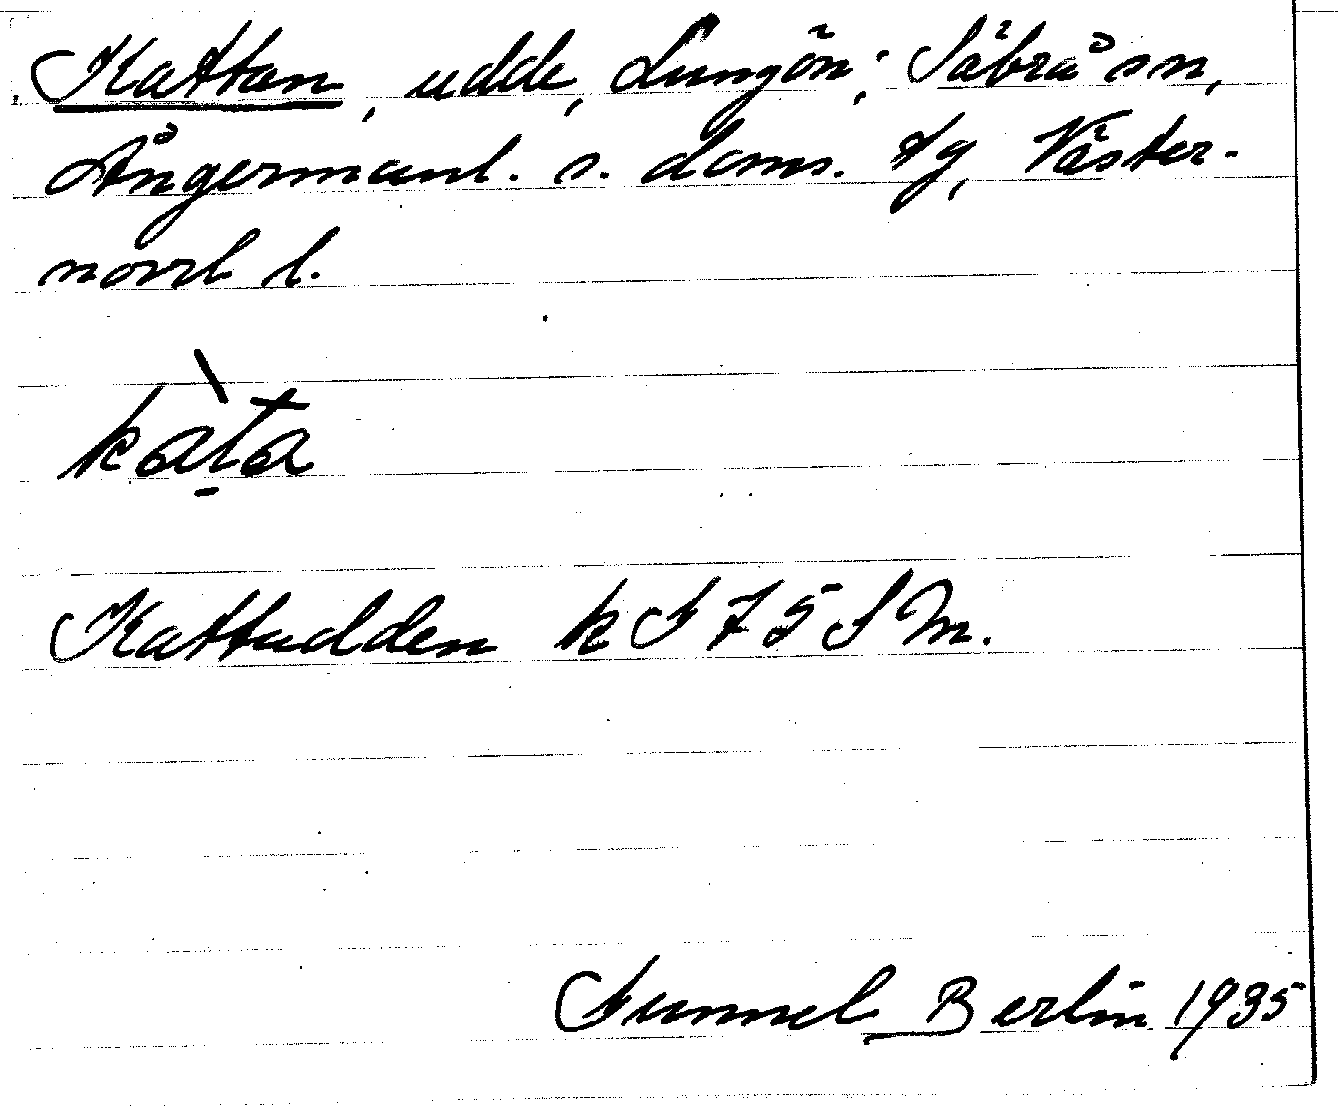 Kattan, udde, Lungön; Säbrå sn,
Ångermanl. s. doms. tg, Väster-
norrl l.
kàt̠a
Kattudden k F 75 S M.
Gunnel Berlin 1935